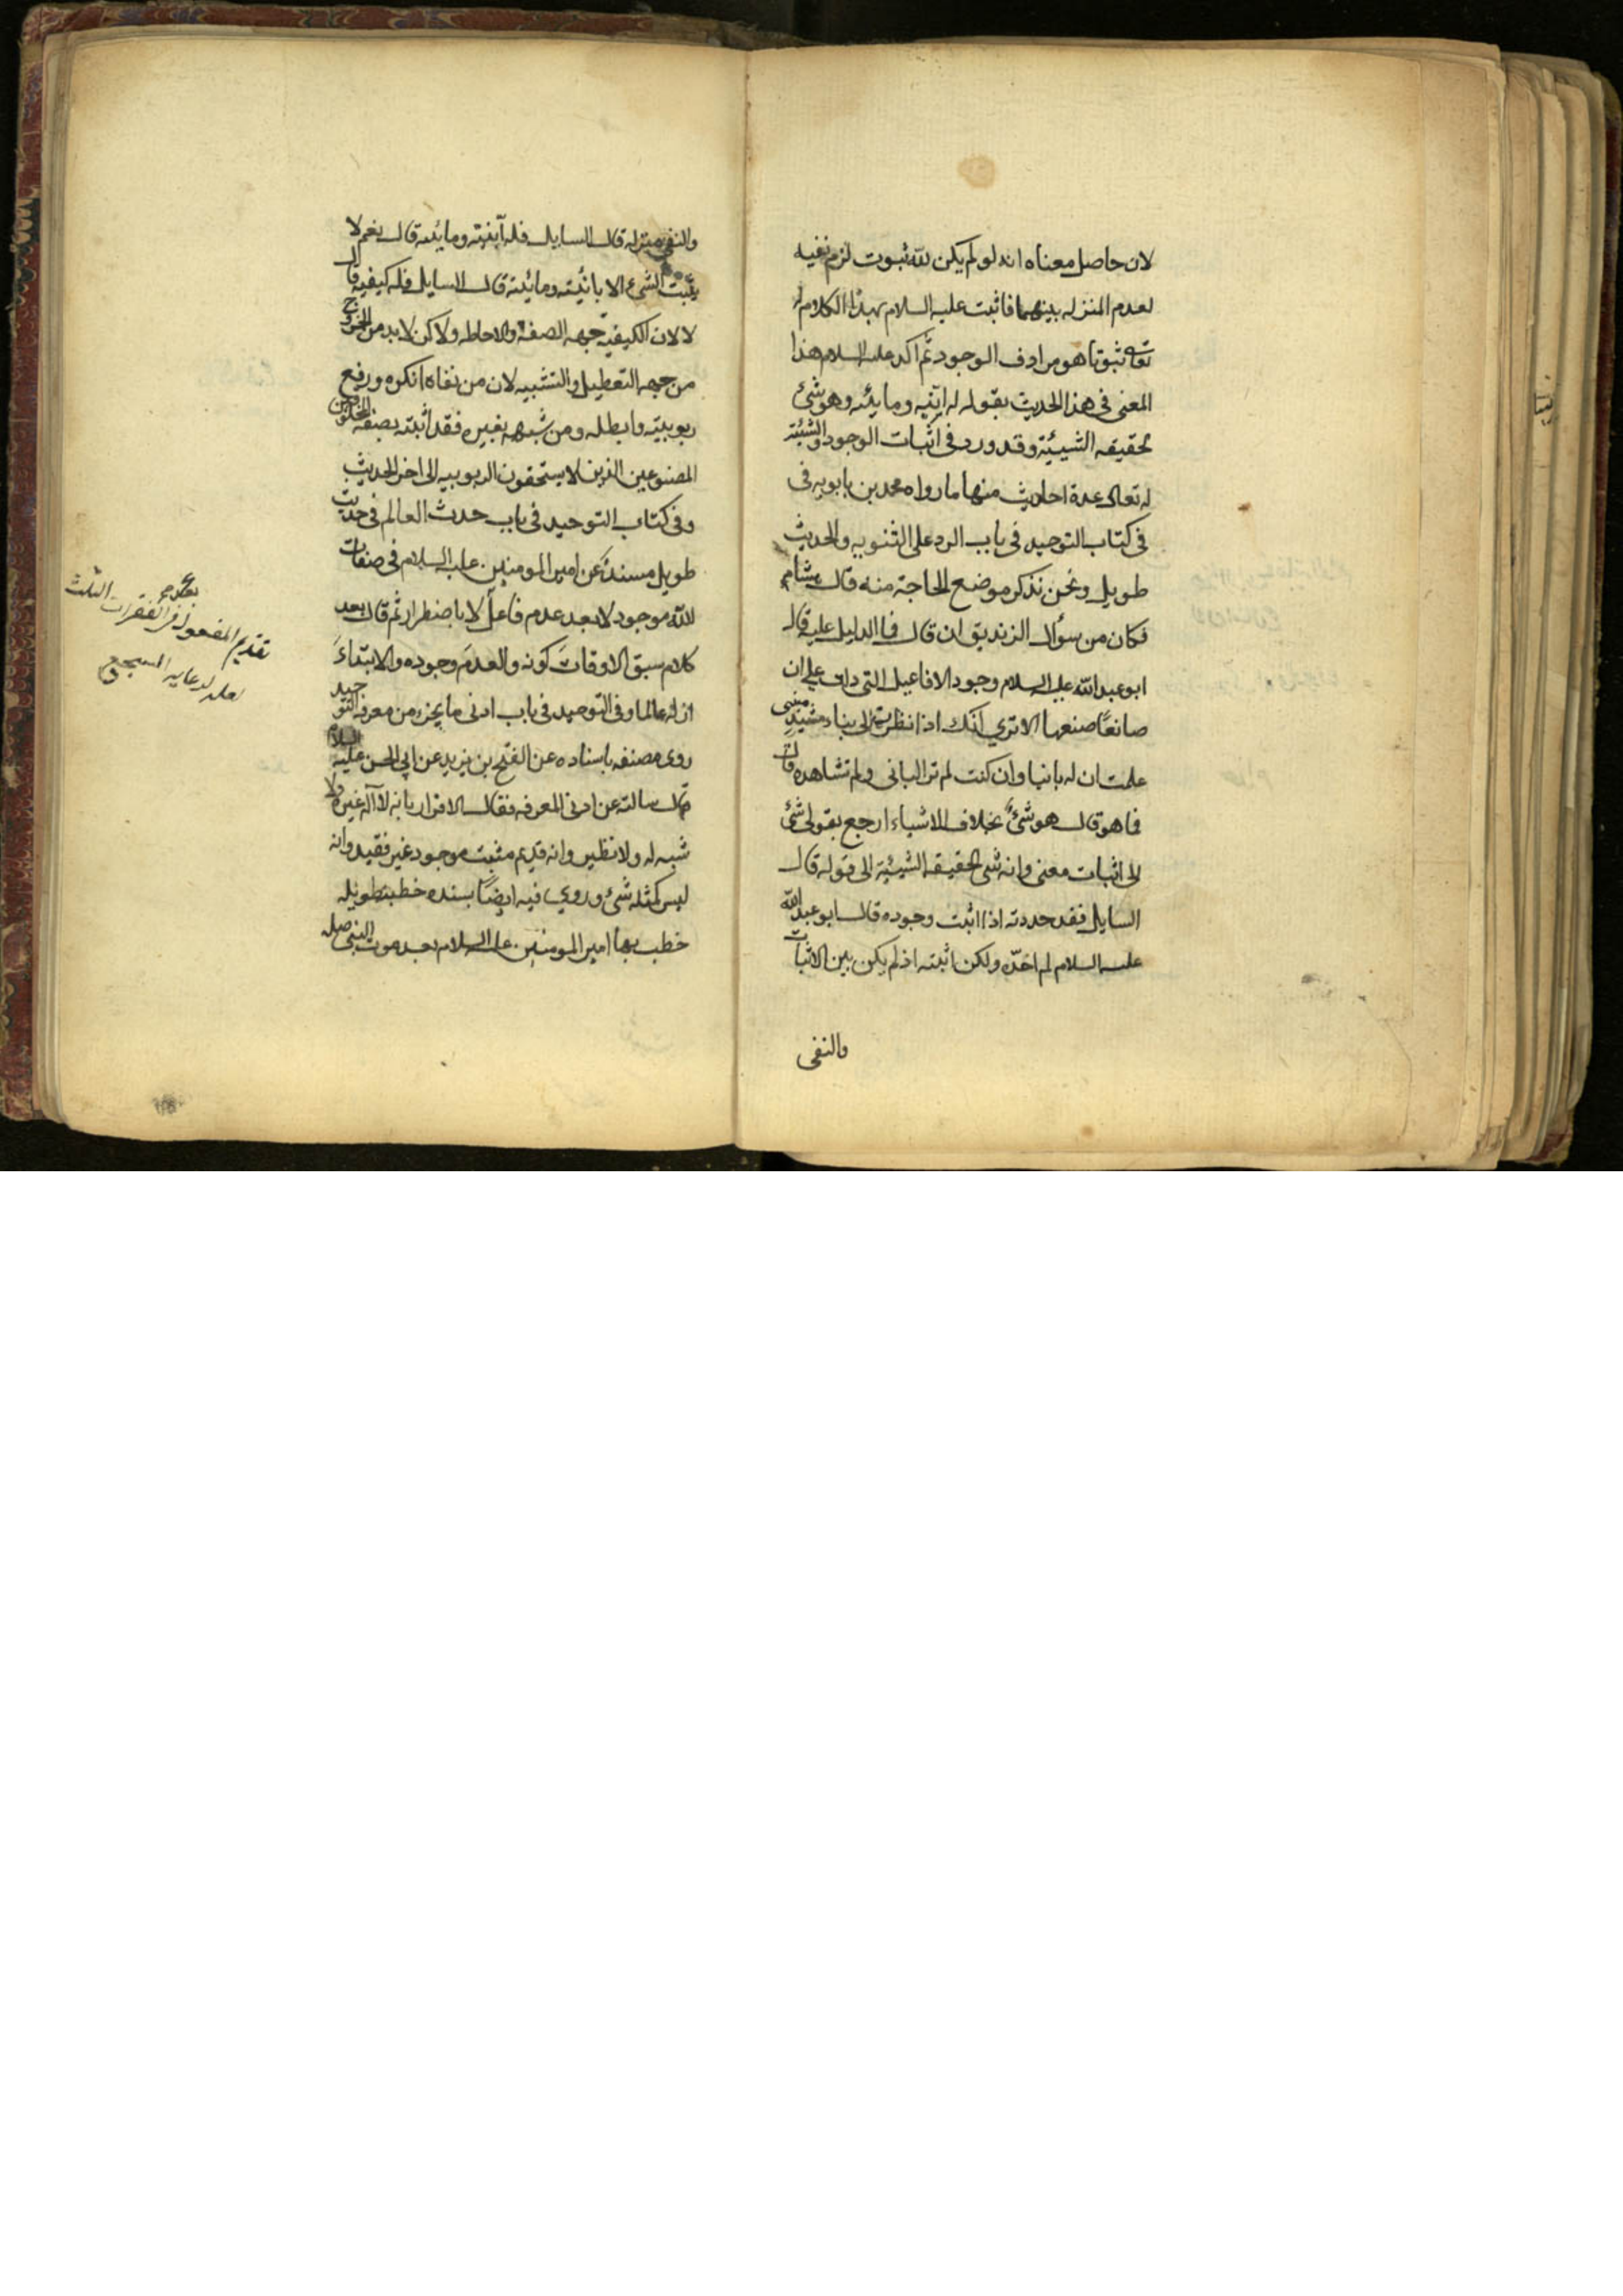 لان حاصل معناه انه لو لم يكن لله ثبوت لزم نفيه
لعدم المنزله بينهما فاثبت عليه السلام بهذا الكلام له
تعالى ثبوتا هو مرادف الوجود ثم اكد عليه السلام هذا
المعنى فى هذا الحديث بقوله له اينه ومايئه وهو شئ
بحقيقه الشيئية وقد ورد فى اثبات الوجود والشيئية
له تعالى عدة احاديث منها ما رواه محمد بن بابويه فى
فى كتاب التوحيد فى باب الرد على الثنويه والحديث
طويل ونحن نذكر موضع الحاجة منه قال هشام
فكان من سؤال الزنديق ان قال فما الدليل عليه قال
ابو عبد الله عليه السلام وجود الافاعيل التى دلت على ان
صانعًا صنعها الا ترى انك اذا نظرت الى بناء مشيد مبنى
علمت ان له بانيا وان كنت لم تر البانى ولم تشاهده قال
فما هو قال هو شئ بخلاف الاشياء ارجع بقولى شئ
الى اثبات معنى وانه شئ بحقيقه الشيئية الى قوله قال
السايل فقد حددته اذا اثبت وجوده قال ابو عبد الله
عليه السلام لم احدّه ولكن اثبته اذ لم يكن بين الاثبات
والنفى
والنفى منزله قال السايل فله آينيته ومايئه قال نعم لا
يثبت الشئ الا بانيّته ومايئته قال السايل فله كيفيه قال
لا لان الكيفيه جهه الصفه والاحاطه ولاكن لا بد من الخروج
من جهه التعطيل والتشبيه لان من نفاه انكره ورفع
ربوبيته وابطله ومن شبهه بغيره فقد اثبته بصفه المخلوقين
المصنوعين الذين لا يستحقون الربوبيه الى اخر الحديث
وفى كتاب التوحيد فى باب حدث العالم فى حديث
طويل مسندٌ عن امير المومنين عليه السلام فى صفات
الله موجود لا بعد عدم فاعل لا باضطرار ثم قال بعد
كلام سبق الاوقاتَ كونه والعدمَ وجوده والابتداءَ
ازله عالما وفى التوحيد فى باب ادنى ما يجزى من معرفه التوحيد
روى مصنفه باسناده عن الفتح بن يزيد عن ابى الحسن عليه السلام
قال سالته عن ادنى المعرفه فقال الاقرار بانه لا آله غيره ولا
شبه له ولا نظير وانه قديم مثبت موجود غير فقيد وانه
ليس كمثله شئ وروى فيه ايضًا بسنده خطبة طويله
خطب بها امير المومنين عليه السلام بعد موت النبى صلى
تقديم المفعول فى الفقرات الثلث
لعله لرعايه السجع